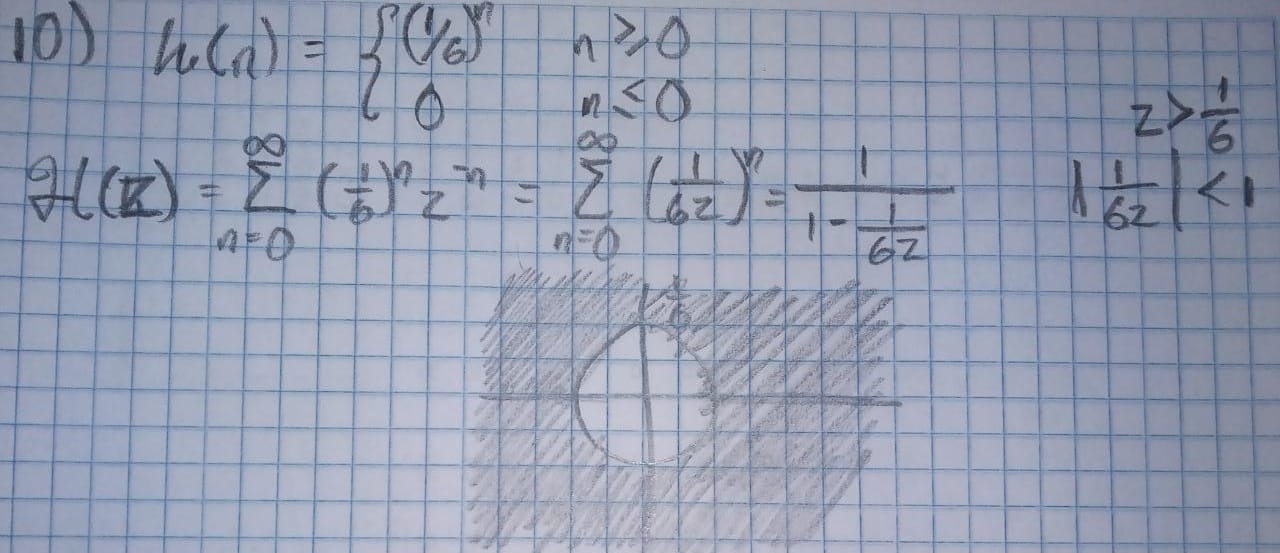 10) h(n) = { (1/6)^n n ≥ 0
0 n ≤ 0
z > 1/6
H(z) = ∑_{n=0}^{∞} (1/6)^n z^{-n} = ∑_{n=0}^{∞} (1/6z)^n = 1/(1 - 1/6z) |1/6z| < 1
1/6